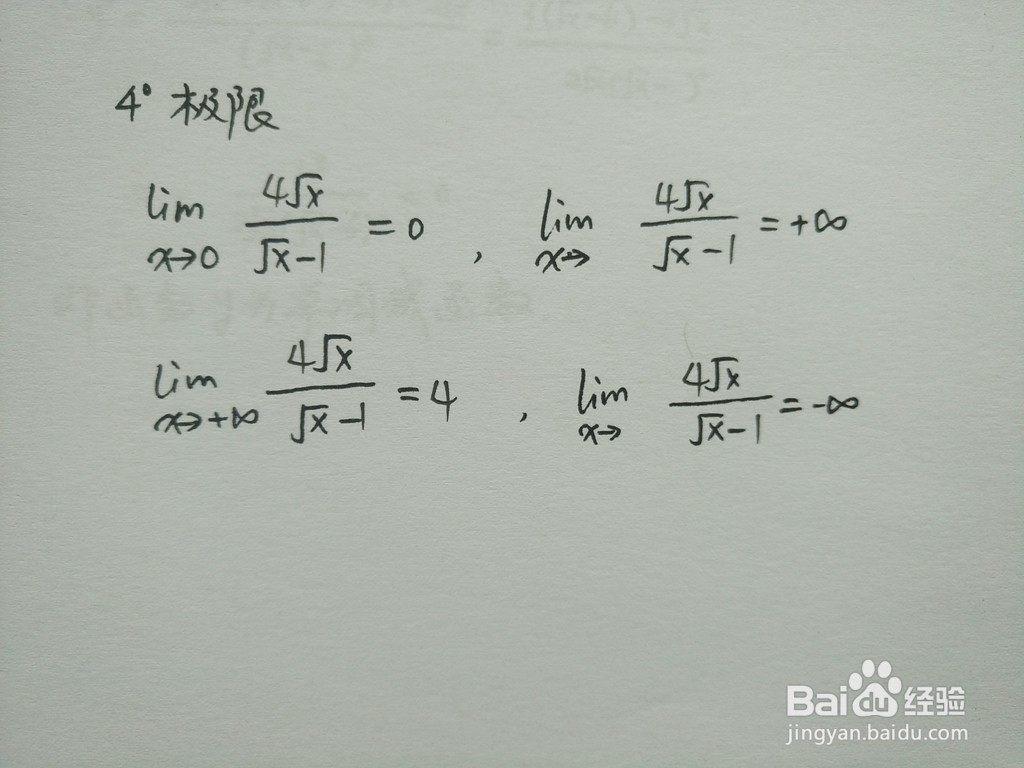 4° 极限
lim x→0 4√x/(√x-1) = 0 , lim x→ 4√x/(√x-1) = +∞
lim x→+∞ 4√x/(√x-1) = 4 , lim x→ 4√x/(√x-1) = -∞
Bai du 经验
jingyan.baidu.com